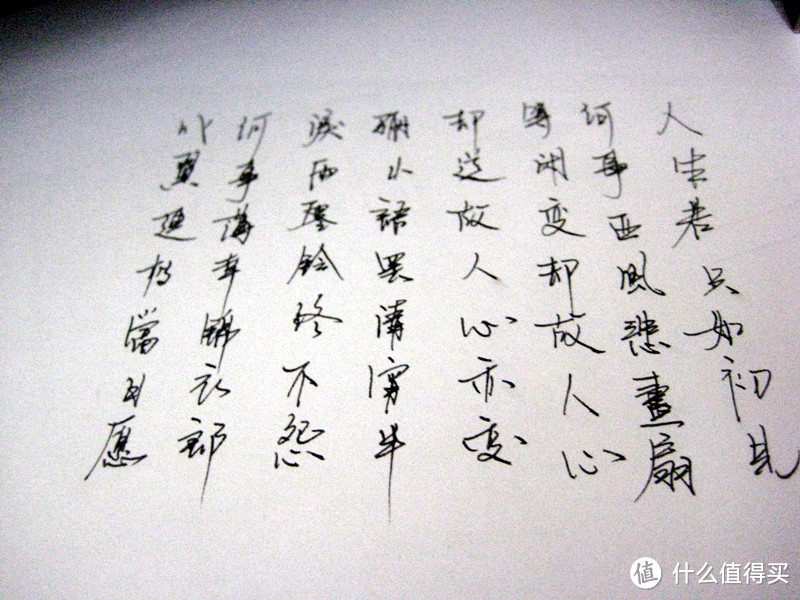 人生若只如初见
何事西風悲畫扇
等闲变却故人心
却道故人心亦变
骊山語罢清宵半
淚雨零鈴终不怨
何事薄幸錦衣郎
比翼連枝當日愿
值 什么值得买